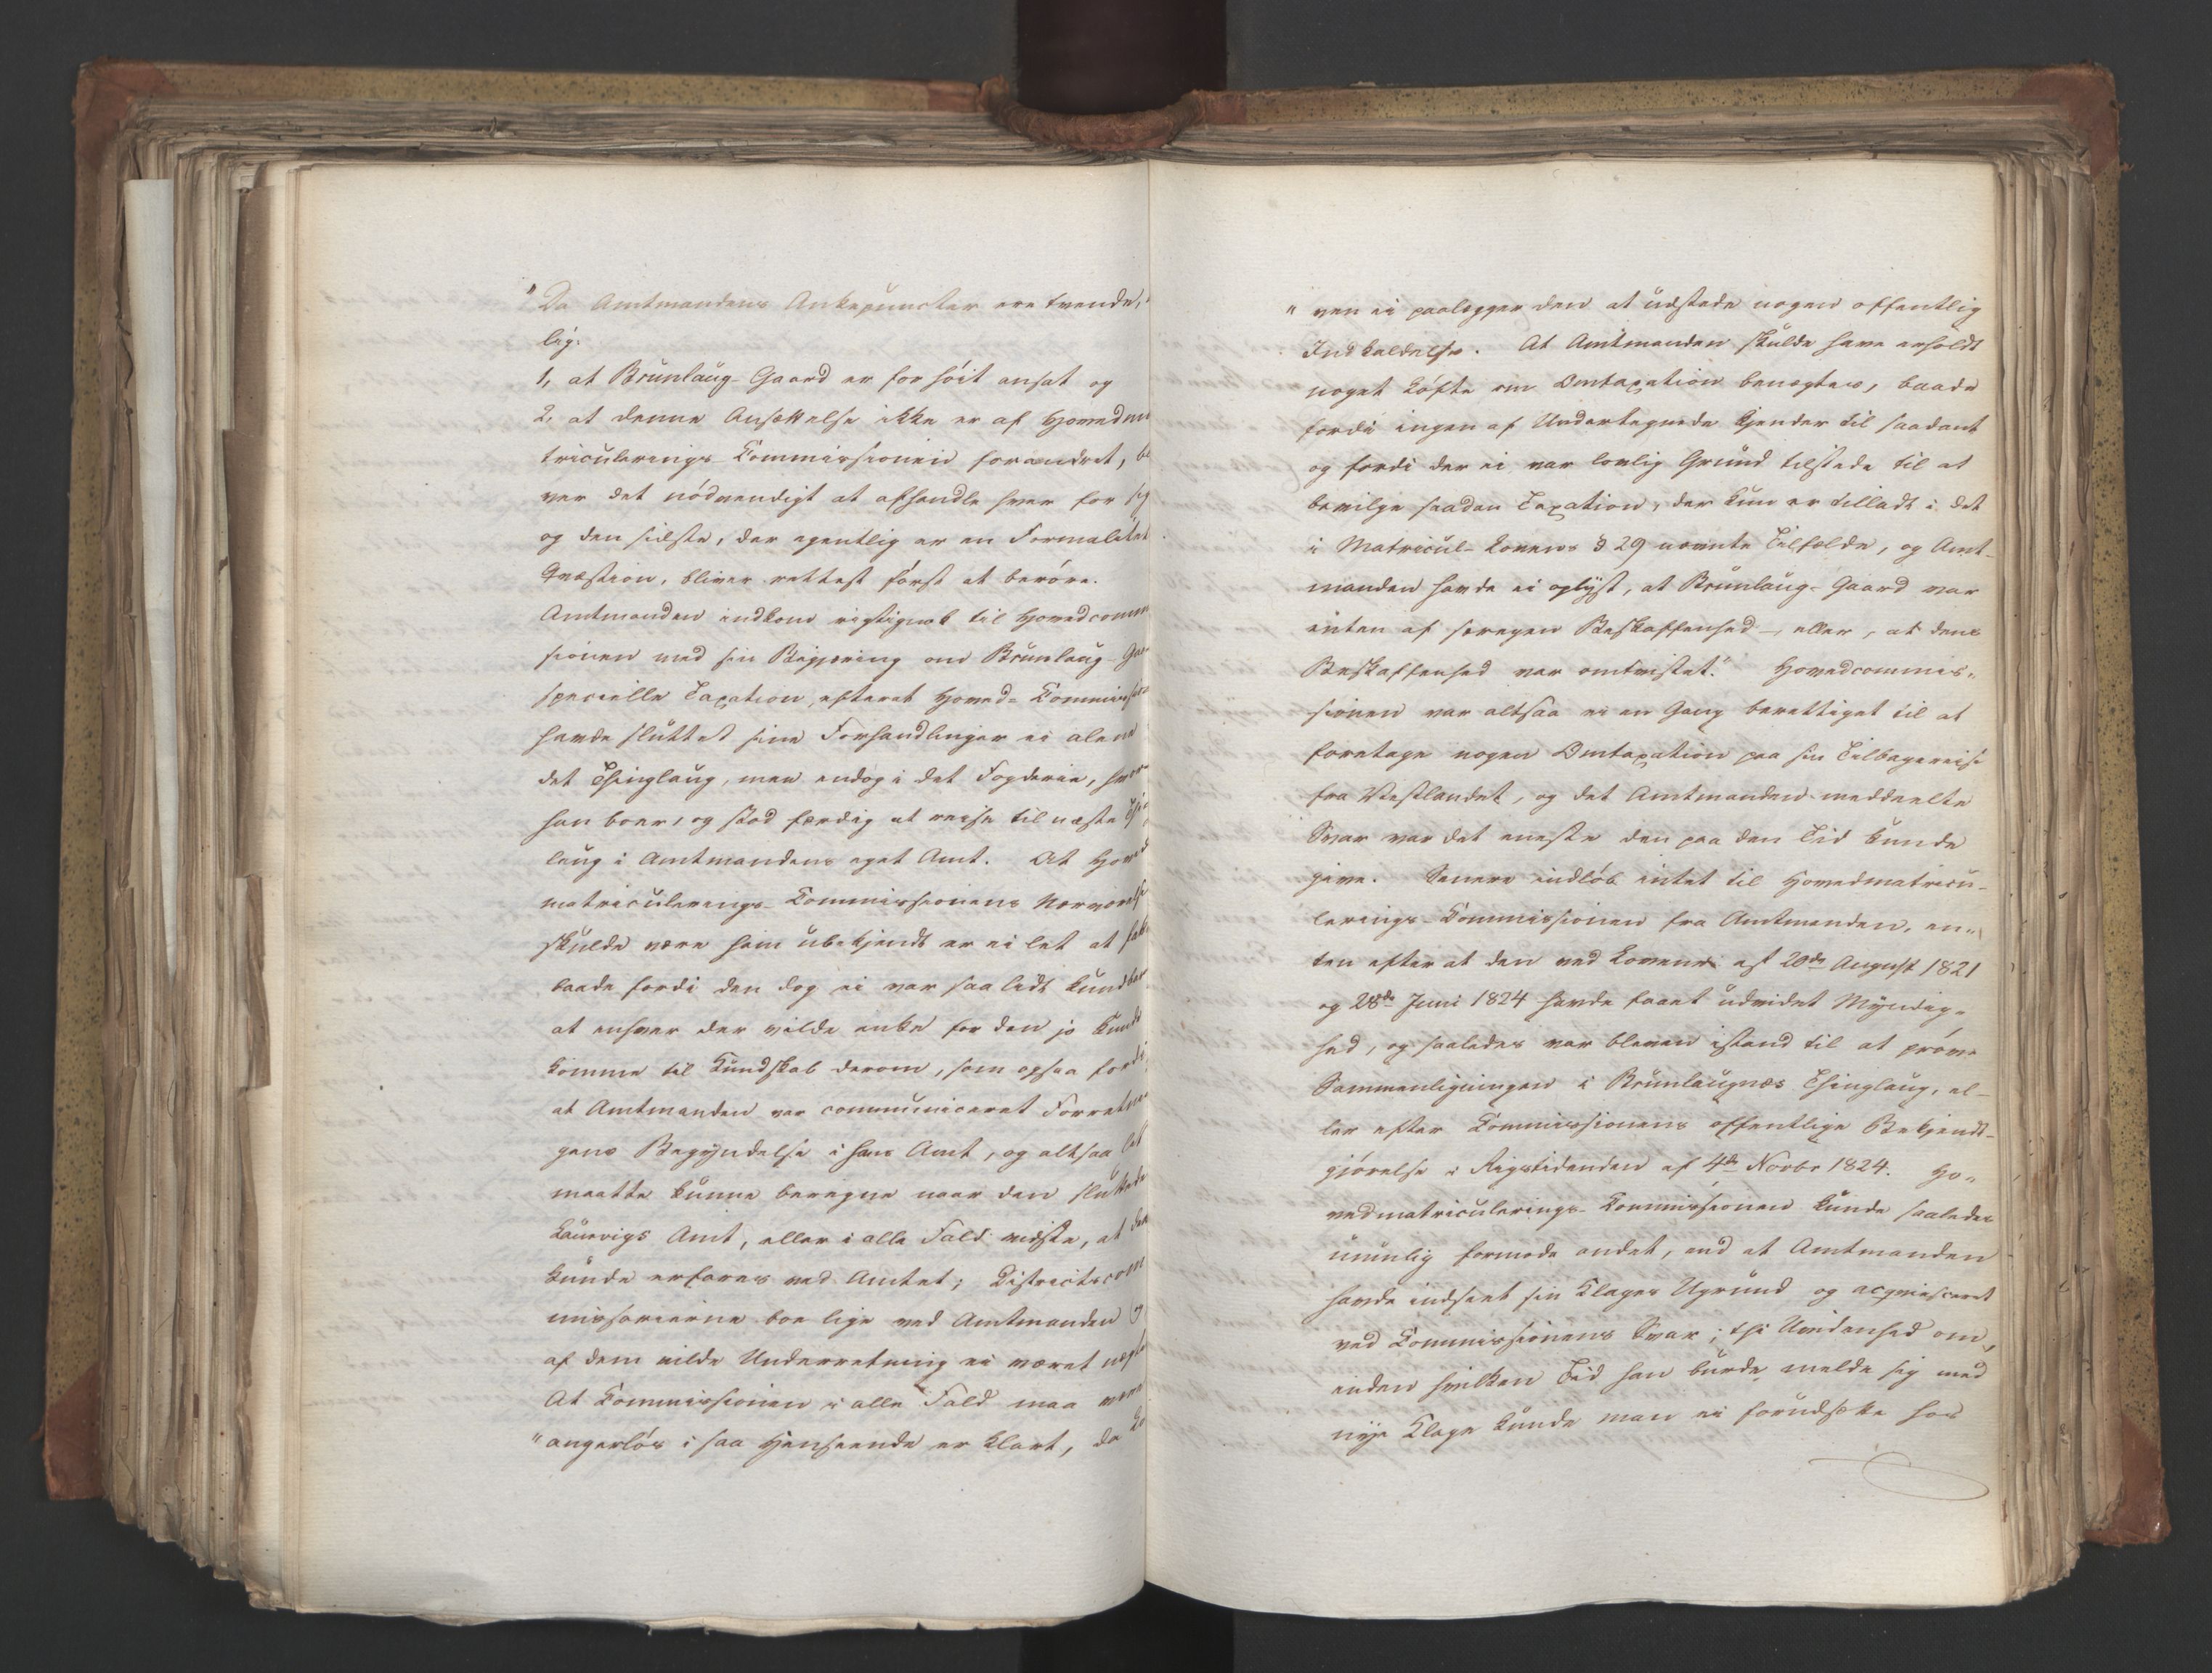 "Da Amtmandens Ankepuncter ere tvende,
lig:
1, at Brunlaug-Gaard er for höit ansat og
2, at denne Ansættelse ikke er af Hovedma
triculerings-Commissionen forandret, bl
ver det nödvendigt at afhandle hver for sig
og den sidste, der egentlig er en Formalitet
Qvæstion, bliver rettest först at beröre.
Amtmanden indkom rigtignok til Hovedcomm
sionen med sin Begjæring om Brunlaug-Gaa
specielle Taxation, efterat Hoved-Commission
havde sluttet sine Forhandlinger ei alene
det Thinglaug, men endog i det Fogderie, hvor
han boer, og stod færdig at reise til næste Th
laug i Amtmandens eget Amt. At Hoved
matriculerings-Commissionens Nærværelse
skulde være ham ubekjendt er ei let at fatte
baade fordi den dog ei var saa lidt kundbar
at enhver der vilde anke for den jo kunde
komme til Kundskab derom, som ogsaa fordi
at Amtmanden var communiceret Forretnin
gens Begyndelse i hans Amt, og altsaa let
maatte kunne beregne naar den sluttede
Laurvigs Amt, eller i alle Fald vidste, at den
kunde erfares ved Amtet; Districtscom
missairerne boe lige ved Amtmanden og
af dem vilde Underretning ei været nægtet
At Commissionen i alle Fald maa være
"angerlös i saa Henseende er klart, da Lo
"ven ei paalegger den at udstede nogen offentlig
Indkaldelse. At Amtmanden skulde have erholdt
noget Löfte om Omtaxation benegtes, baade
fordi ingen af Undertegnede kjender til saadant
og fordi der ei var lovlig Grund tilstede til at
bevilge saadan Taxation, der kun er tilladt i det
i Matricul-Lovens § 29 nevnte Tilfælde, og Amt-
manden havde ei oplyst, at Brunlaug-Gaard var
enten af særegen Beskaffenhed –, eller, at dens
Beskaffenhed var omtvistet." Hovedcommis„
sionen var altsaa ei en Gang berettiget til at
foretage nogen Omtaxation paa sin Tilbagereise
fra Vestlandet, og det Amtmanden meddeelte
Svar var det eneste den paa den Tid kunde
give. Senere indlöb intet til Hovedmatricu-
lerings-Commissionen fra Amtmanden, en„
ten efter at den ved Lovene af 20de August 1821
og 28de Juni 1824 havde faaet udvidet Myndig„
hed, og saaledes var bleven istand til at pröve
Sammenligningen i Brunlaugnæs Thinglaug, el-
ler efter Commissionens offentlige Bekjendt-
gjörelse i Rigstidenden af 4de Novbr 1824. Ho„
vedmatriculerings-Commissionen kunde saaledes
umulig formode andet, end at Amtmanden
havde indseet sin Klages Ugrund og acqviesceret
ved Commissionens Svar; thi Uvidenhed om,
inden hvilken Tid han burde melde sig med
nye Klage kunde man ei forudsætte hos